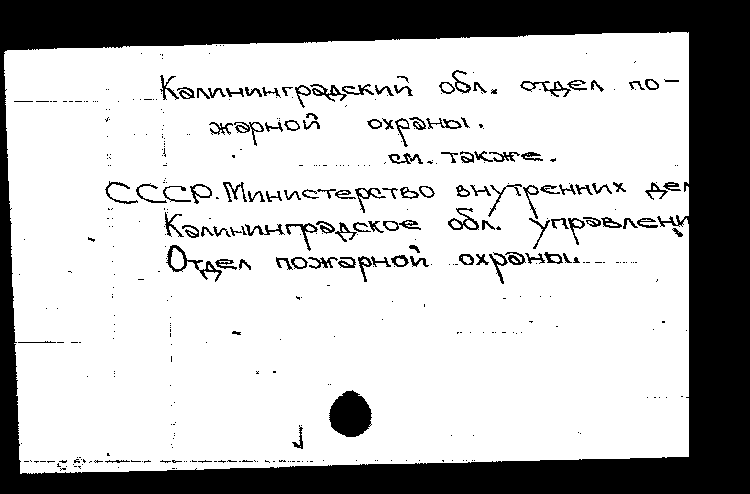 Калининградский обл. отдел по-
жарной охраны.
см. также.
СССР. Министерство внутренних дел
Калининградское обл. управлени
Отдел пожарной охраны.